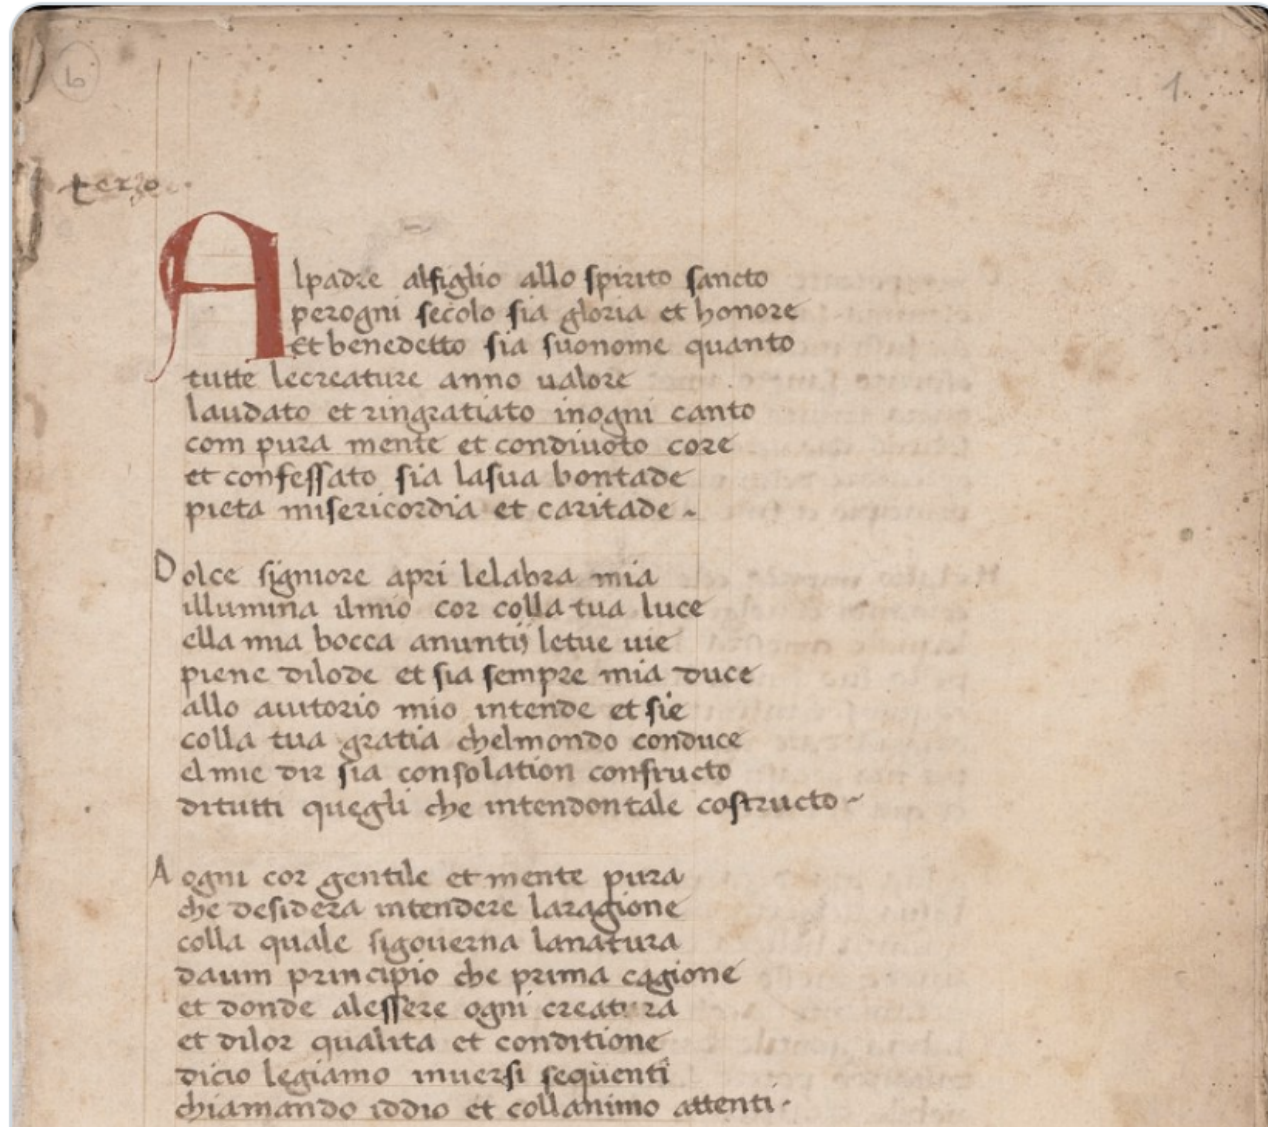 6
1
terzo
Alpadre alfiglio allo spirito sancto
perogni secolo sia gloria et honore
Et benedetto sia suonome quanto
tutte lecreature anno ualore
laudato et ringratiato inogni canto
com pura mente et condiuoto core
et confessato sia lasua bontade
pieta misericordia et caritade
Dolce signiore apri lelabra mia
illumina ilmio cor colla tua luce
ella mia bocca anuntij letue uie
piene dilode et sia sempre mia duce
allo aiutorio mio intende et sie
colla tua gratia chelmondo conduce
elmie dir sia consolation confructo
ditutti quegli che intendontale costructo
A ogni cor gentile et mente pura
che desidera intendere laragione
colla quale sigouerna lanatura
daum principio che prima cagione
et donde alessere ogni creatura
et dilor qualita et conditione
dicio legiamo inuersi sequenti
chiamando iddio et collanimo attenti